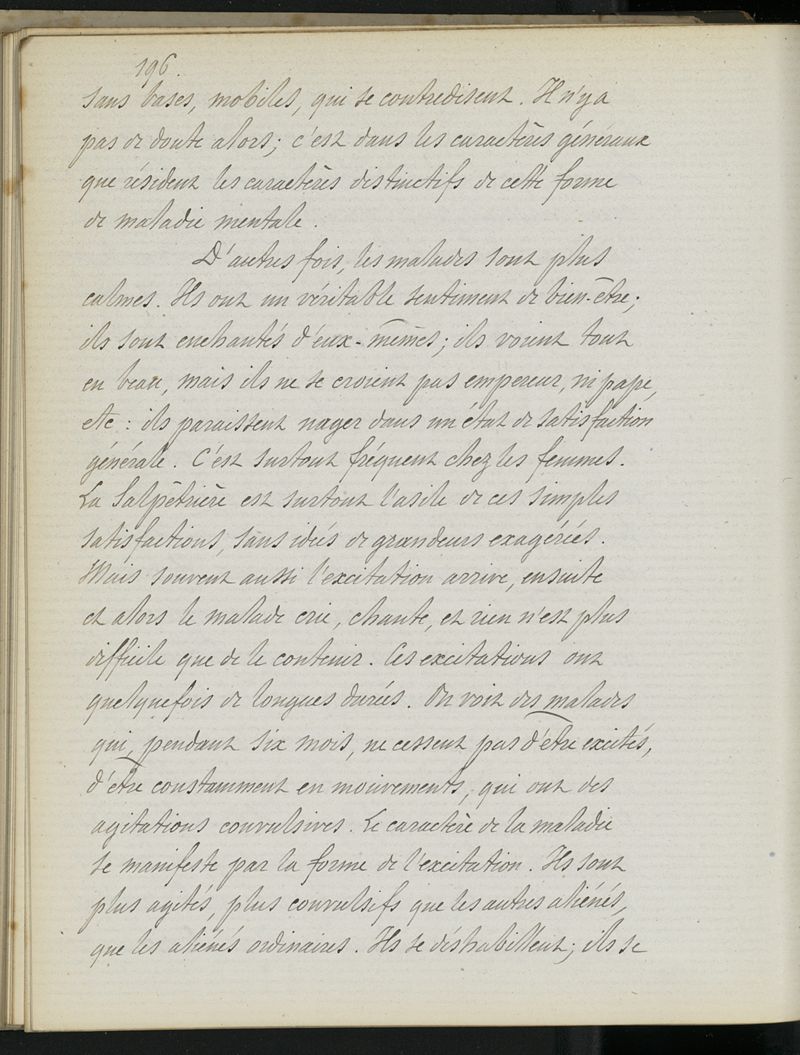 196.
sans bases, mobiles, qui se contredisent. Il n'y a
pas de doute alors; c'est dans les caractères généraux
que résident les caractères distinctifs de cette forme
de maladie mentale.
D'autres fois, les malades sont plus
calmes. Ils ont un véritable sentiment de bien-être;
ils sont enchantés d'eux-mêmes; ils voient tout
en beau, mais ils ne se croient pas empereur, ni pape,
etc : ils paraissent nager dans un état de satisfaction
générale. C'est surtout fréquent chez les femmes.
La Salpêtrière est surtout l'asile de ces simples
satisfactions, sans idées de grandeurs exagérées.
Mais souvent aussi l'excitation arrive, ensuite
et alors le malade crie, chante, et rien n'est plus
difficile que de le contenir. Ces excitations ont
quelquefois de longues durées. On voit des malades
qui, pendant six mois, ne cessent pas d'être excités,
d'être constamment en mouvements, qui ont des
agitations convulsives. Le caractère de la maladie
se manifeste par la forme de l'excitation. Ils sont
plus agités, plus convulsifs que les autres aliénés,
que les aliénés ordinaires. Ils se déshabillent; ils se